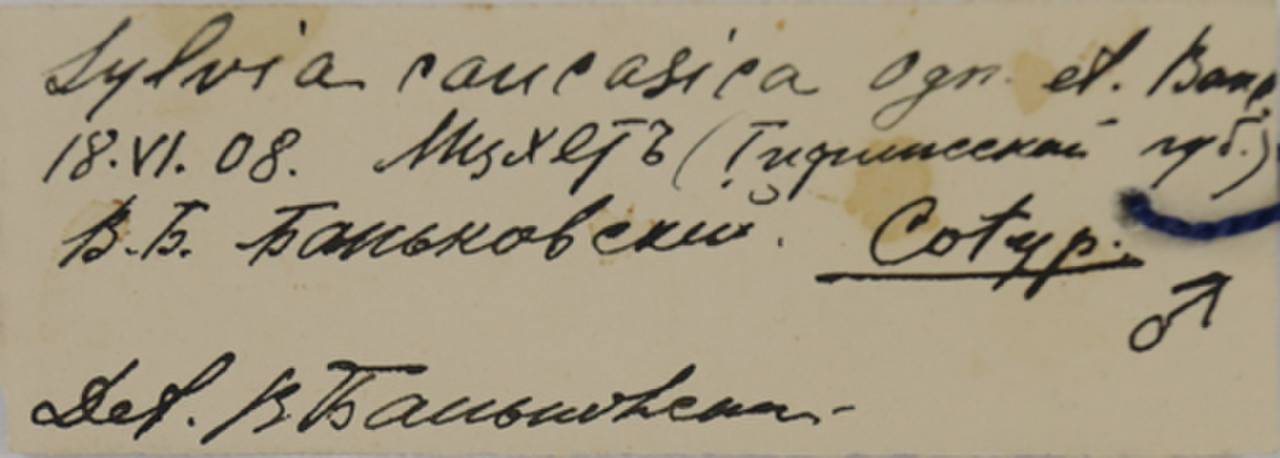 Sylvia caucasica Ogn. et. Banк.
18.VI.08. Мцхетъ (Тифлисской губ.)
В.Б. Баньковский. Cotyp.
♂
Det. В. Баньковский.